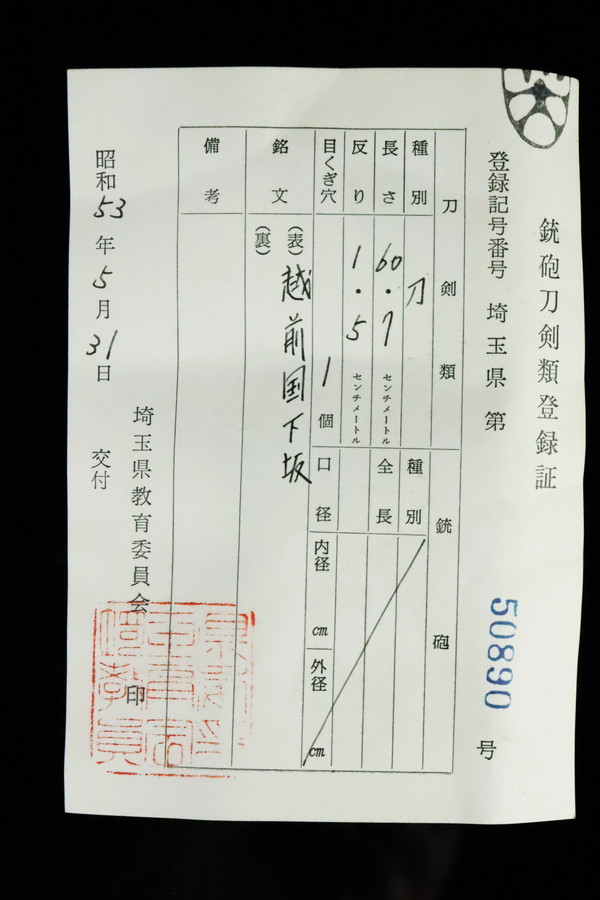 銃砲刀剣類登録証
登録記号番号 埼玉県 第 50890 号
刀剣類
銃砲
種別 刀
長さ 60.7 センチメートル
反り 1.5 センチメートル
目くぎ穴 1 個
銘文 (表) 越前国下坂
(裏)
備考
種別
全長
口径 内径 cm 外径 cm
埼玉県教育委員会 印
昭和53年5月31日 交付